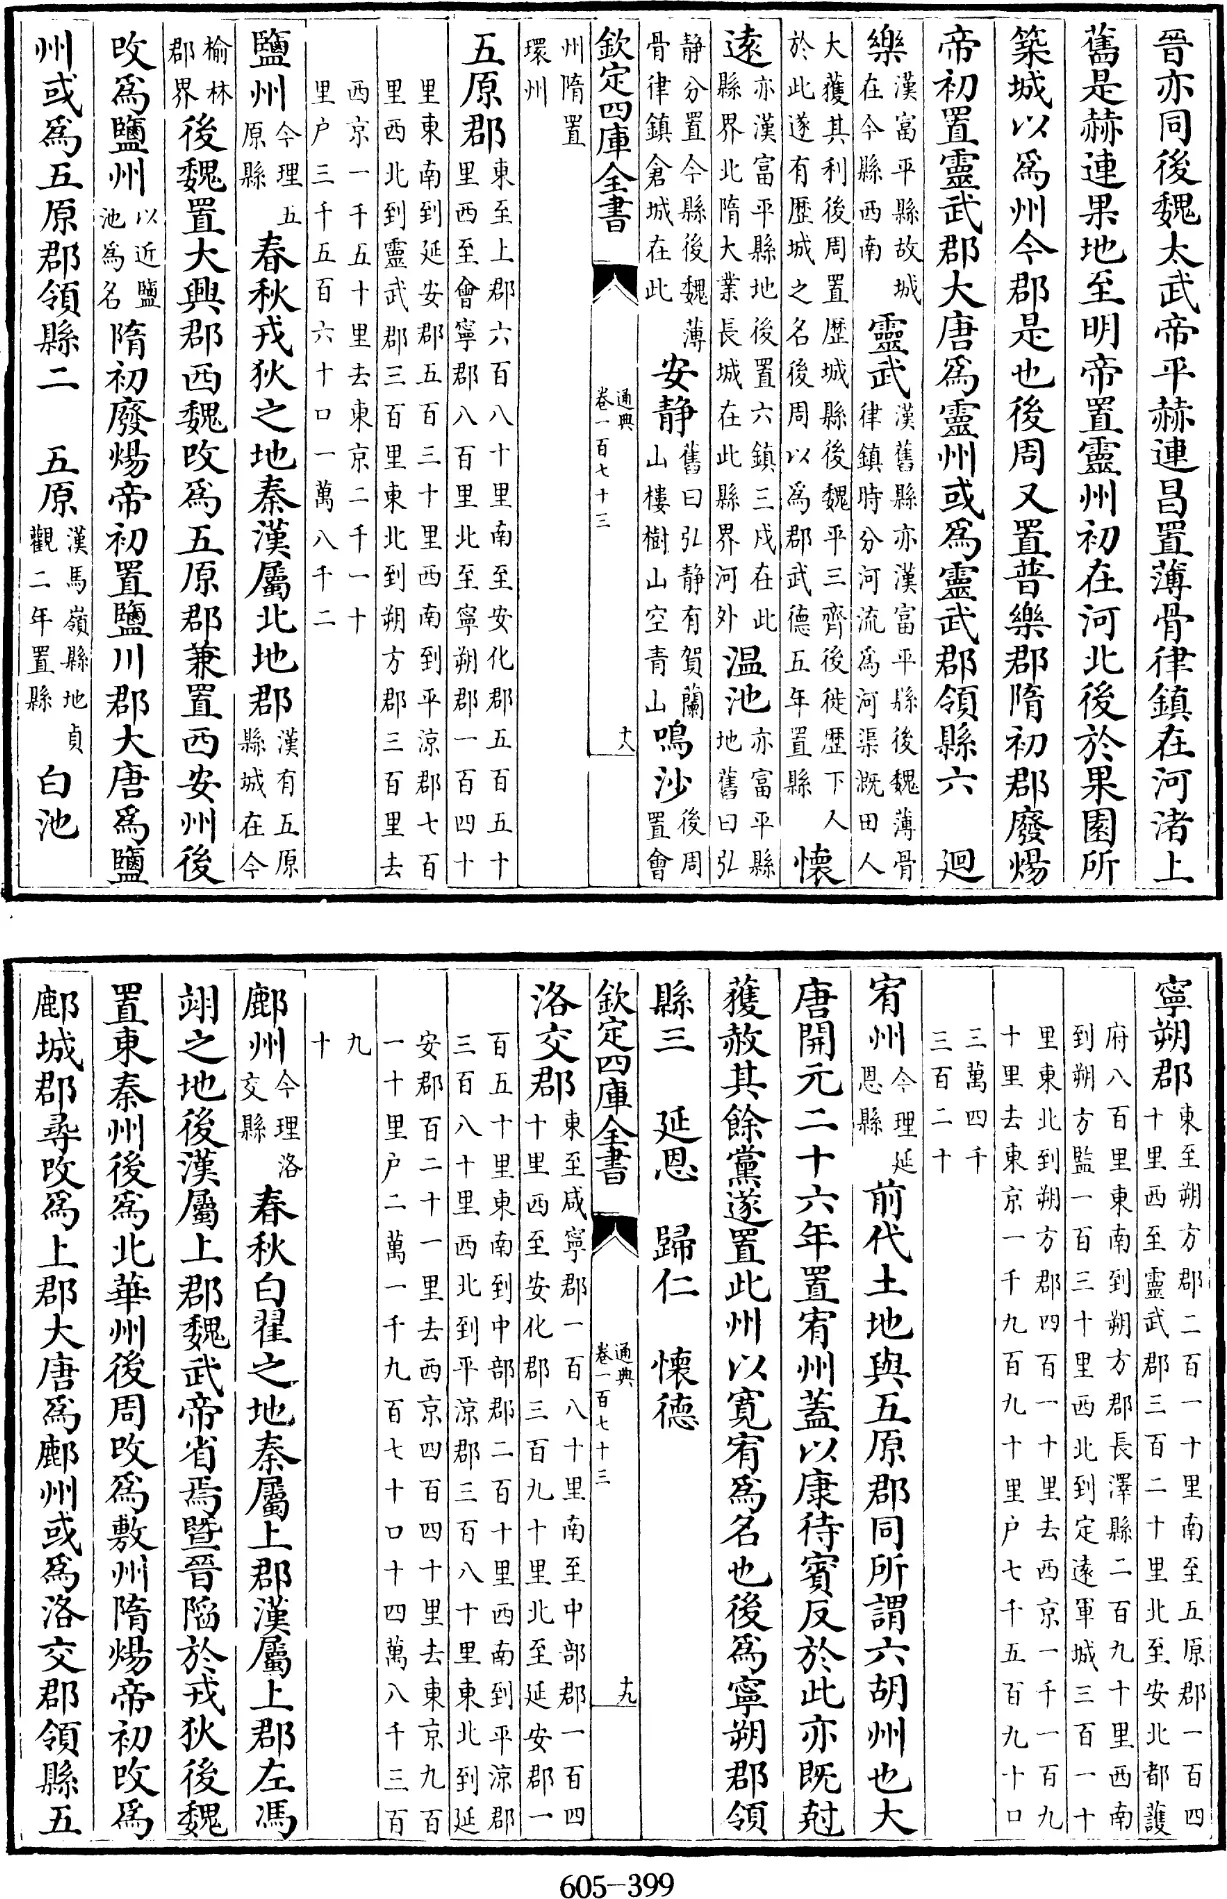 晉亦同後魏太武帝平赫連昌置薄骨律鎮在河渚上
舊是赫連果地至明帝置靈州初在河北後於果園所
築城以為州今郡是也後周又置普樂郡隋初郡廢煬
帝初置靈武郡大唐為靈州或為靈武郡領縣六　廻
樂漢富平縣故城在今縣西南　靈武漢舊縣亦漢富平縣後魏薄骨律鎮時分河流為河渠溉田人
大獲其利後周置歴城縣後魏平三齊後徙歴下人於此遂有歴城之名後周以為郡武德五年置縣　懷
逺亦漢富平縣地後置六鎮三戍在此縣界北隋大業長城在此縣界河外　温池亦富平縣地舊曰弘
静分置今縣後魏薄骨律鎮倉城在此　安静舊曰弘静有賀蘭山樓樹山空青山　鳴沙後周置會
欽定四庫全書　通典卷一百七十三　十八
州隋置環州
五原郡東至上郡六百八十里南至安化郡五百五十里西至會寧郡八百里北至寧朔郡一百四十
里東南到延安郡五百三十里西南到平涼郡七百里西北到靈武郡三百里東北到朔方郡三百里去
西京一千五十里去東京二千一十里户三千五百六十口一萬八千二
鹽州今理五原縣　春秋戎狄之地秦漢屬北地郡漢有五原縣城在今
榆林郡界後魏置大興郡西魏改為五原郡兼置西安州後
改為鹽州以近鹽池為名隋初廢煬帝初置鹽川郡大唐為鹽
州或為五原郡領縣二　五原漢馬嶺縣地貞觀二年置縣　白池
寧朔郡東至朔方郡二百一十里南至五原郡一百四十里西至靈武郡三百二十里北至安北都護
府八百里東南到朔方郡長澤縣二百九十里西南到朔方監一百三十里西北到定逺軍城三百一十
里東北到朔方郡四百一十里去西京一千一百九十里去東京一千九百九十里户七千五百九十口
三萬四千三百二十
宥州今理延恩縣　前代土地與五原郡同所謂六胡州也大
唐開元二十六年置宥州葢以康待賓反於此亦既尅
獲赦其餘黨遂置此州以寛宥為名也後為寧朔郡領
縣三　延恩　歸仁　懷德
欽定四庫全書　通典卷一百七十三　十九
洛交郡東至咸寧郡一百八十里南至中部郡一百四十里西至安化郡三百九十里北至延安郡一
百五十里東南到中部郡二百十里西南到平涼郡三百八十里西北到平涼郡三百八十里東北到延
安郡百二十一里去西京四百四十里去東京九百一十里户二萬一千九百七十口十四萬八千三百
九十
鄜州今理洛交縣　春秋白翟之地秦屬上郡漢屬上郡左馮
翊之地後漢屬上郡魏武帝省焉暨晉陷於戎狄後魏
置東秦州後為北華州後周改為敷州隋煬帝初改為
鄜城郡尋改為上郡大唐為鄜州或為洛交郡領縣五
605-399